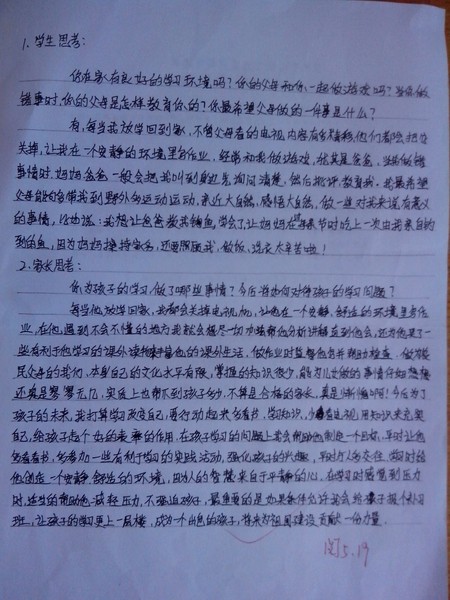 1.学生思考:
你在家有良好的学习环境吗?你的父母和你一起做游戏吗?当你做
错事时,你的父母是怎样教育你的?你最希望父母做的一件事是什么?
有,每当我放学回到家,不管父母看的电视内容有多精彩,他们都会把它
关掉,让我在一个安静的环境里写作业,经常和我做游戏,尤其是爸爸,当我做错
事情时,妈妈爸爸一般会把我叫到身边先询问清楚,然后批评教育我,我最希望
父母能够多带我到野外多运动,亲近大自然,感悟大自然,做一些对我来说有意义
的事情,比如说:我想让爸爸教我钓鱼,学会了,让妈妈在母亲节时吃上一次由我亲自钓
到的鱼,因为妈妈操持家务,还要照顾我,做饭,洗衣太辛苦啦!
2.家长思考:
你为孩子的学习做了哪些事情?今后将如何对待孩子的学习问题?
每当他放学回家,我都会关掉电视机,让他在一个安静,舒适的环境里写作
业,在他遇到不会不懂的地方我就会尽一切办法帮他分析讲解直到他会,还为他买了一
些有利于他学习的课外读物丰富他的课外生活,做作业时监督他并帮助检查,做为农
民父母的我们,本身自己的文化水平有限,掌握的知识很少,能为儿女做的事情仔细想想
还真是寥寥无几,实质上也帮不到孩子多少,不算是合格的家长,真是惭愧啊!今后为了
孩子的未来,我打算学习改变自己,要行动起来多看书,学习知识,少看电视,用知识来充实
自己,给孩子起个好的表率的作用,在孩子学习的问题上我会帮助他制定一个目标,平时让他
多看看书,多参加一些有利于学习的实践活动,强化孩子的兴趣,平时行人多交往,做到时给
他创造一个安静,舒适的环境,因为人的智慧来自于平静的心,在学习时感觉到压力
时,适当的帮助他减轻压力,不强迫孩子,最重要的是如果条件允许我会给孩子报个补习
班,让孩子的学习更上一层楼,成为一个出色的孩子,将来为祖国建设贡献一份力量.
阅5.19